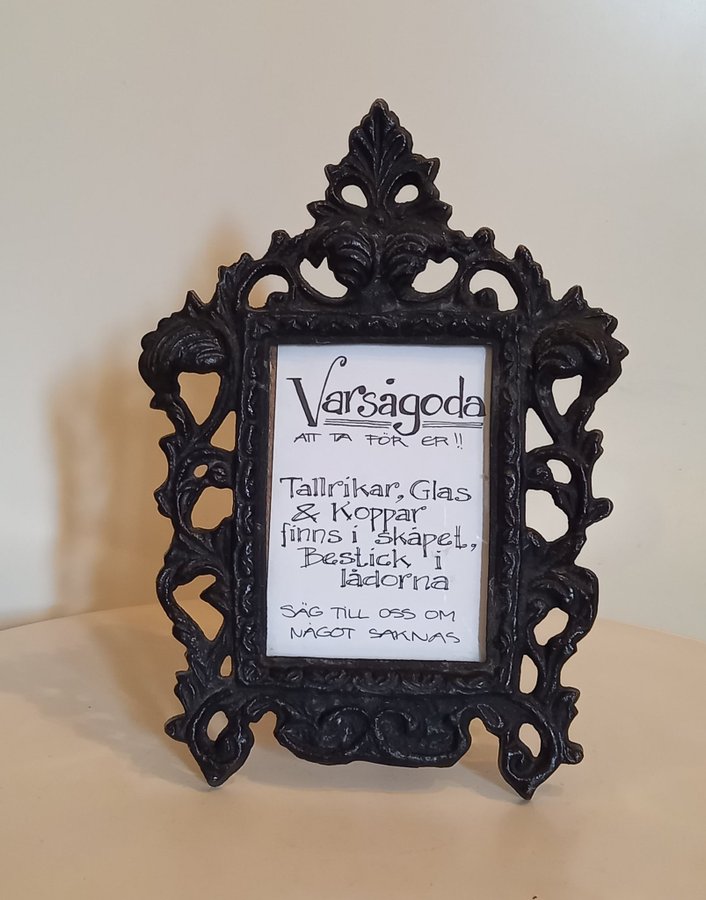 Varsågoda
ATT TA FÖR ER!!
Tallrikar, Glas
& Koppar
finns i skåpet,
Bestick i
lådorna
SÄG TILL OSS OM
NÅGOT SAKNAS